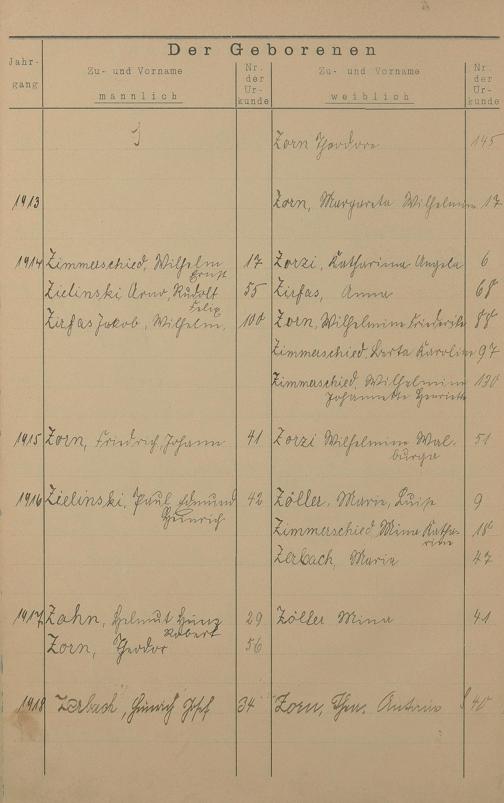 Der Geborenen
Jahr-
gang
Zu- und Vorname
männlich
Nr.
der
Ur-
kunde
Zu- und Vorname
weiblich
Nr.
der
Ur-
kunde
Zorn Theodora 145
1913 Zorn, Margareta Wilhelmine 17
1914 Zimmerschied, Wilhelm 17 Zorzi, Katharina Angela 6
Ernst
Zielinski Arno, Rudolf 55 Zirfas, Anna 68
Felix
Zirfas Jakob, Wilhelm. 100 Zorn, Wilhelmine Friederike 88
Zimmerschied, Berta Karoline 97
Zimmerschied, Wilhelmine 130
Johannette Henriette
1915 Zorn, Friedrich, Johann 41 Zorzi Wilhelmine Wal- 51
burga
1916 Zielinski, Paul Edmund 42 Zöller, Marie, Luise 9
Heinrich
Zimmerschied Mina Katha- 18
rina
Zerbach, Maria 47
1917 Zahn, Helmut Heinz 29 Zöller Mina 41
Robert
Zorn, Theodor 56
1918 Zerbach, Heinrich Josef 34 Zorn, Antonie 40